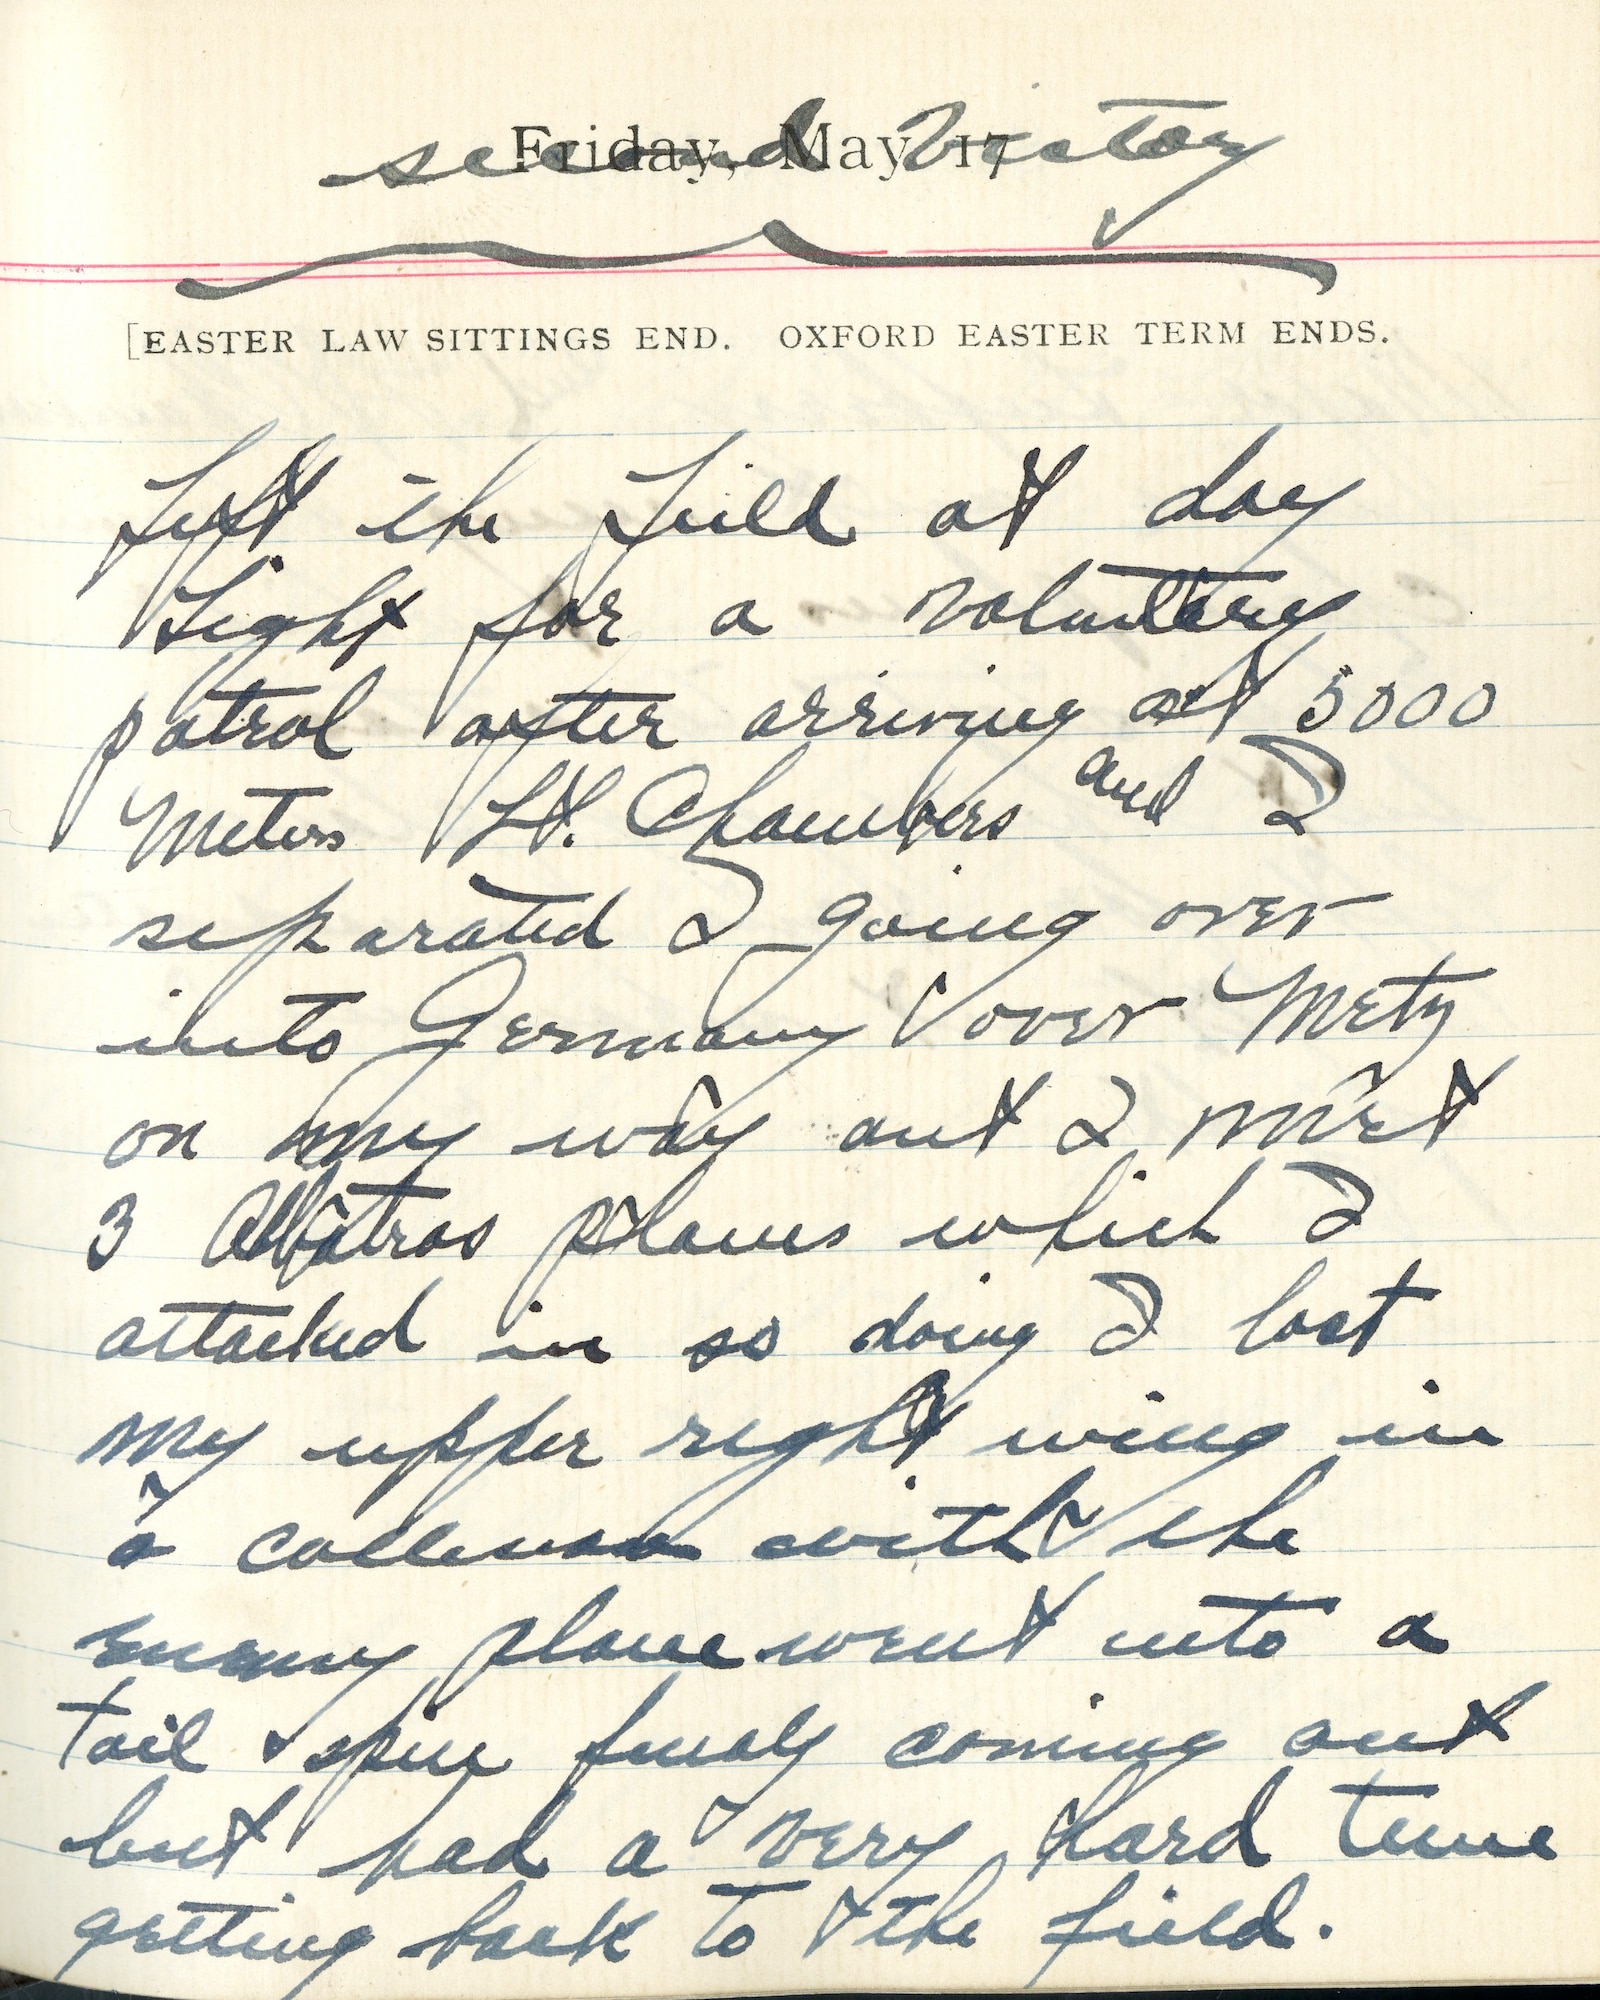 second Victory
Friday, May 17
[EASTER LAW SITTINGS END. OXFORD EASTER TERM ENDS.
Left the Field at day
Light for a voluntery
patrol after arriving at 5000
Meters Lt. Chambers and I
separated I going over
into Germany over Metz
on my way out I met
3 Albatros planes which I
attacked in so doing I lost
my upper right wing in
a collision with the
enemy plane went into a
tail spin finaly coming out
but had a very hard time
getting back to the field.